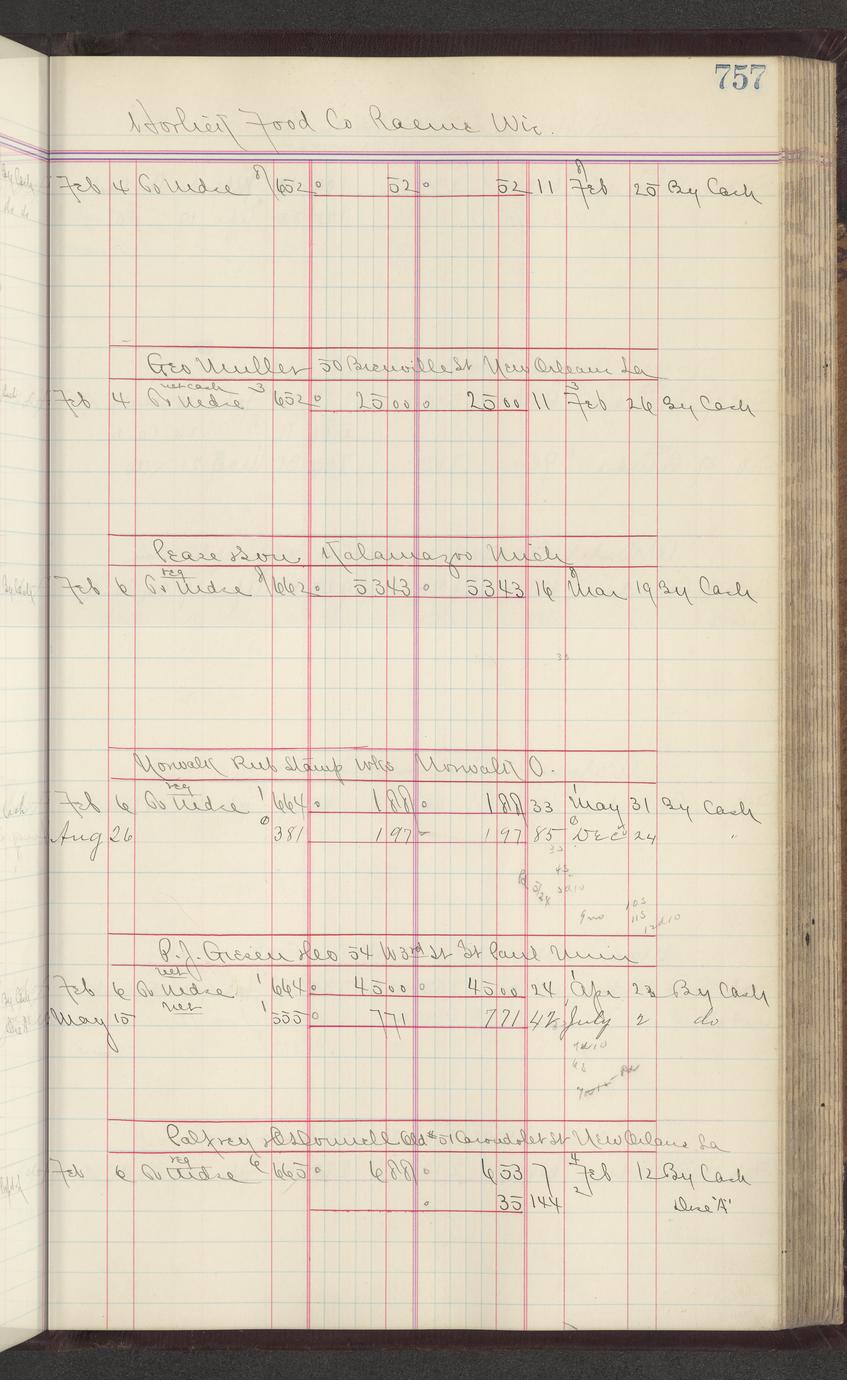 757
Horlick Food Co Racine Wis.
Feb 4 To Mdse 8 652 52 52 11 8 Feb 25 By Cash
Geo Muller 50 Bienville St New Orleans La
net cash
Feb 4 To Mdse 3 652 25 00 25 00 11 3 Feb 26 By Cash
Kalamazoo Mich
reg
Feb 6 To Mdse 8 662 53 43 53 43 16 8 Mar 19 By Cash
Norwalk Rub Stamp Wks Norwalk O.
reg
Feb 6 To Mdse 1 664 1 88 1 88 33 1 May 31 By Cash
Aug 26 6 381 1 97 1 97 85 6 Dec 24 "
P. J. Giesen 54 W 3rd St St Paul Minn
net
Feb 6 To Mdse 1 664 45 00 45 00 24 1 Apr 23 By Cash
net
May 15 1 555 7 71 7 71 42 July 2 do
Palfrey O'Donnell Old # 51 Carondolet St New Orleans La
reg
Feb 6 To Mdse 6 665 6 88 6 53 7 4 Feb 12 By Cash
35 144 2 Disc "A"